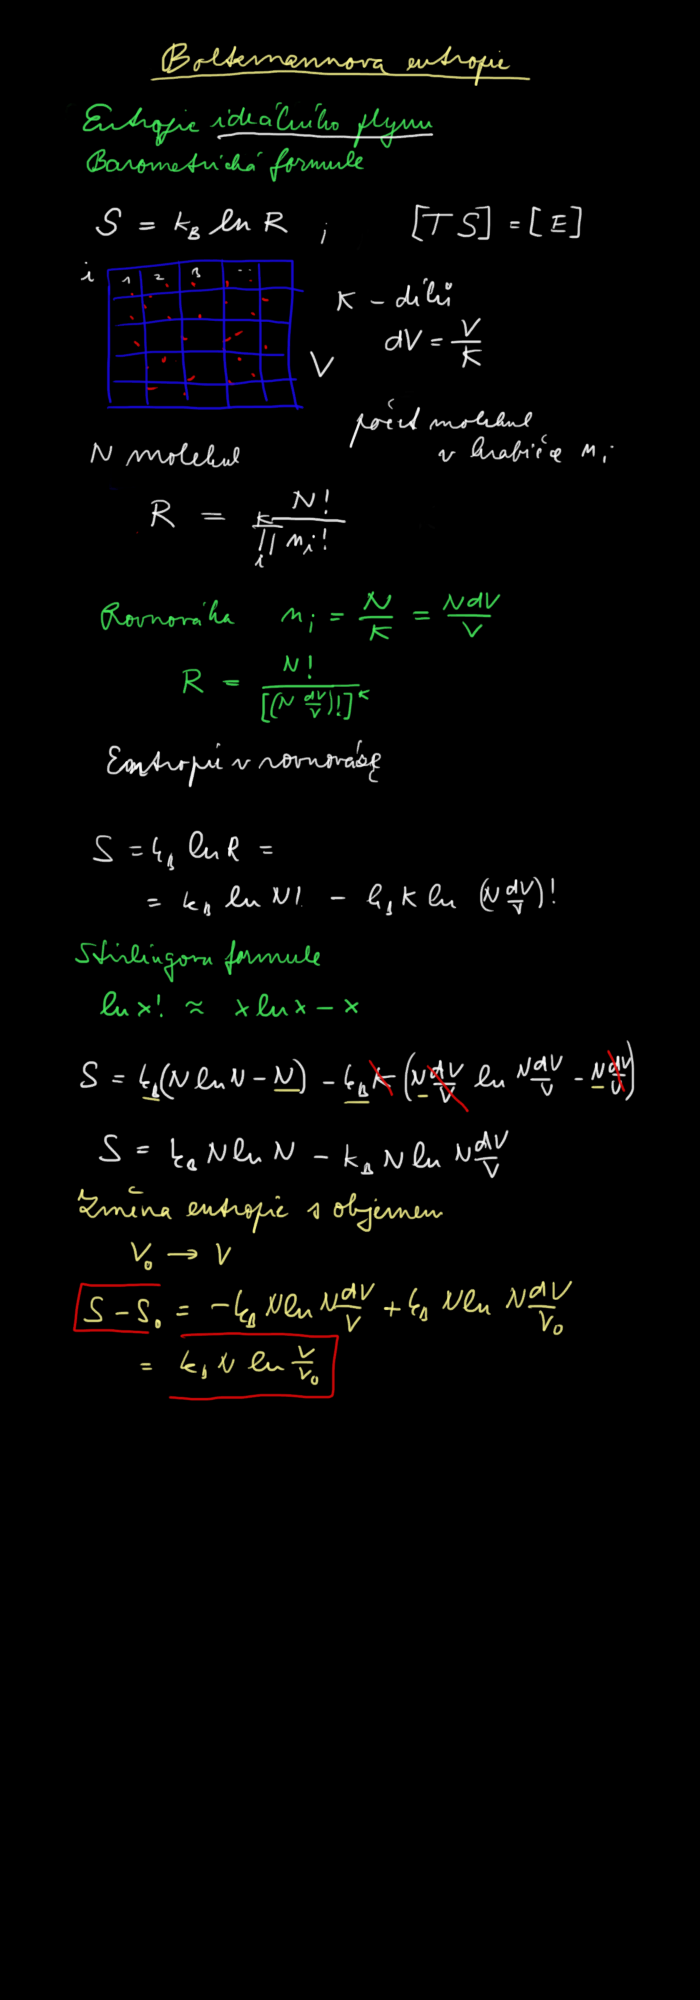 Boltzmannova entropie
Entropie ideálního plynu
Barometrická formule
S = k_B ln R ; [TS] = [E]
i 1 2 3 ...
K - dílů
dV = V/K
V
počet molekul
v krabičce n_i
N molekul
R = N! / ∏_i^K n_i!
Rovnováha n_i = N/K = N dV/V
R = N! / [(N dV/V)!]^K
Entropie v rovnováze
S = k_B ln R =
= k_B ln N! - k_B K ln (N dV/V)!
Stirlingova formule
ln x! ≈ x ln x - x
S = k_B (N ln N - N) - k_B K (N dV/V ln N dV/V - N dV/V)
S = k_B N ln N - k_B N ln N dV/V
Změna entropie s objemem
V_0 → V
S - S_0 = - k_B N ln N dV/V + k_B N ln N dV/V_0
= k_B N ln V/V_0